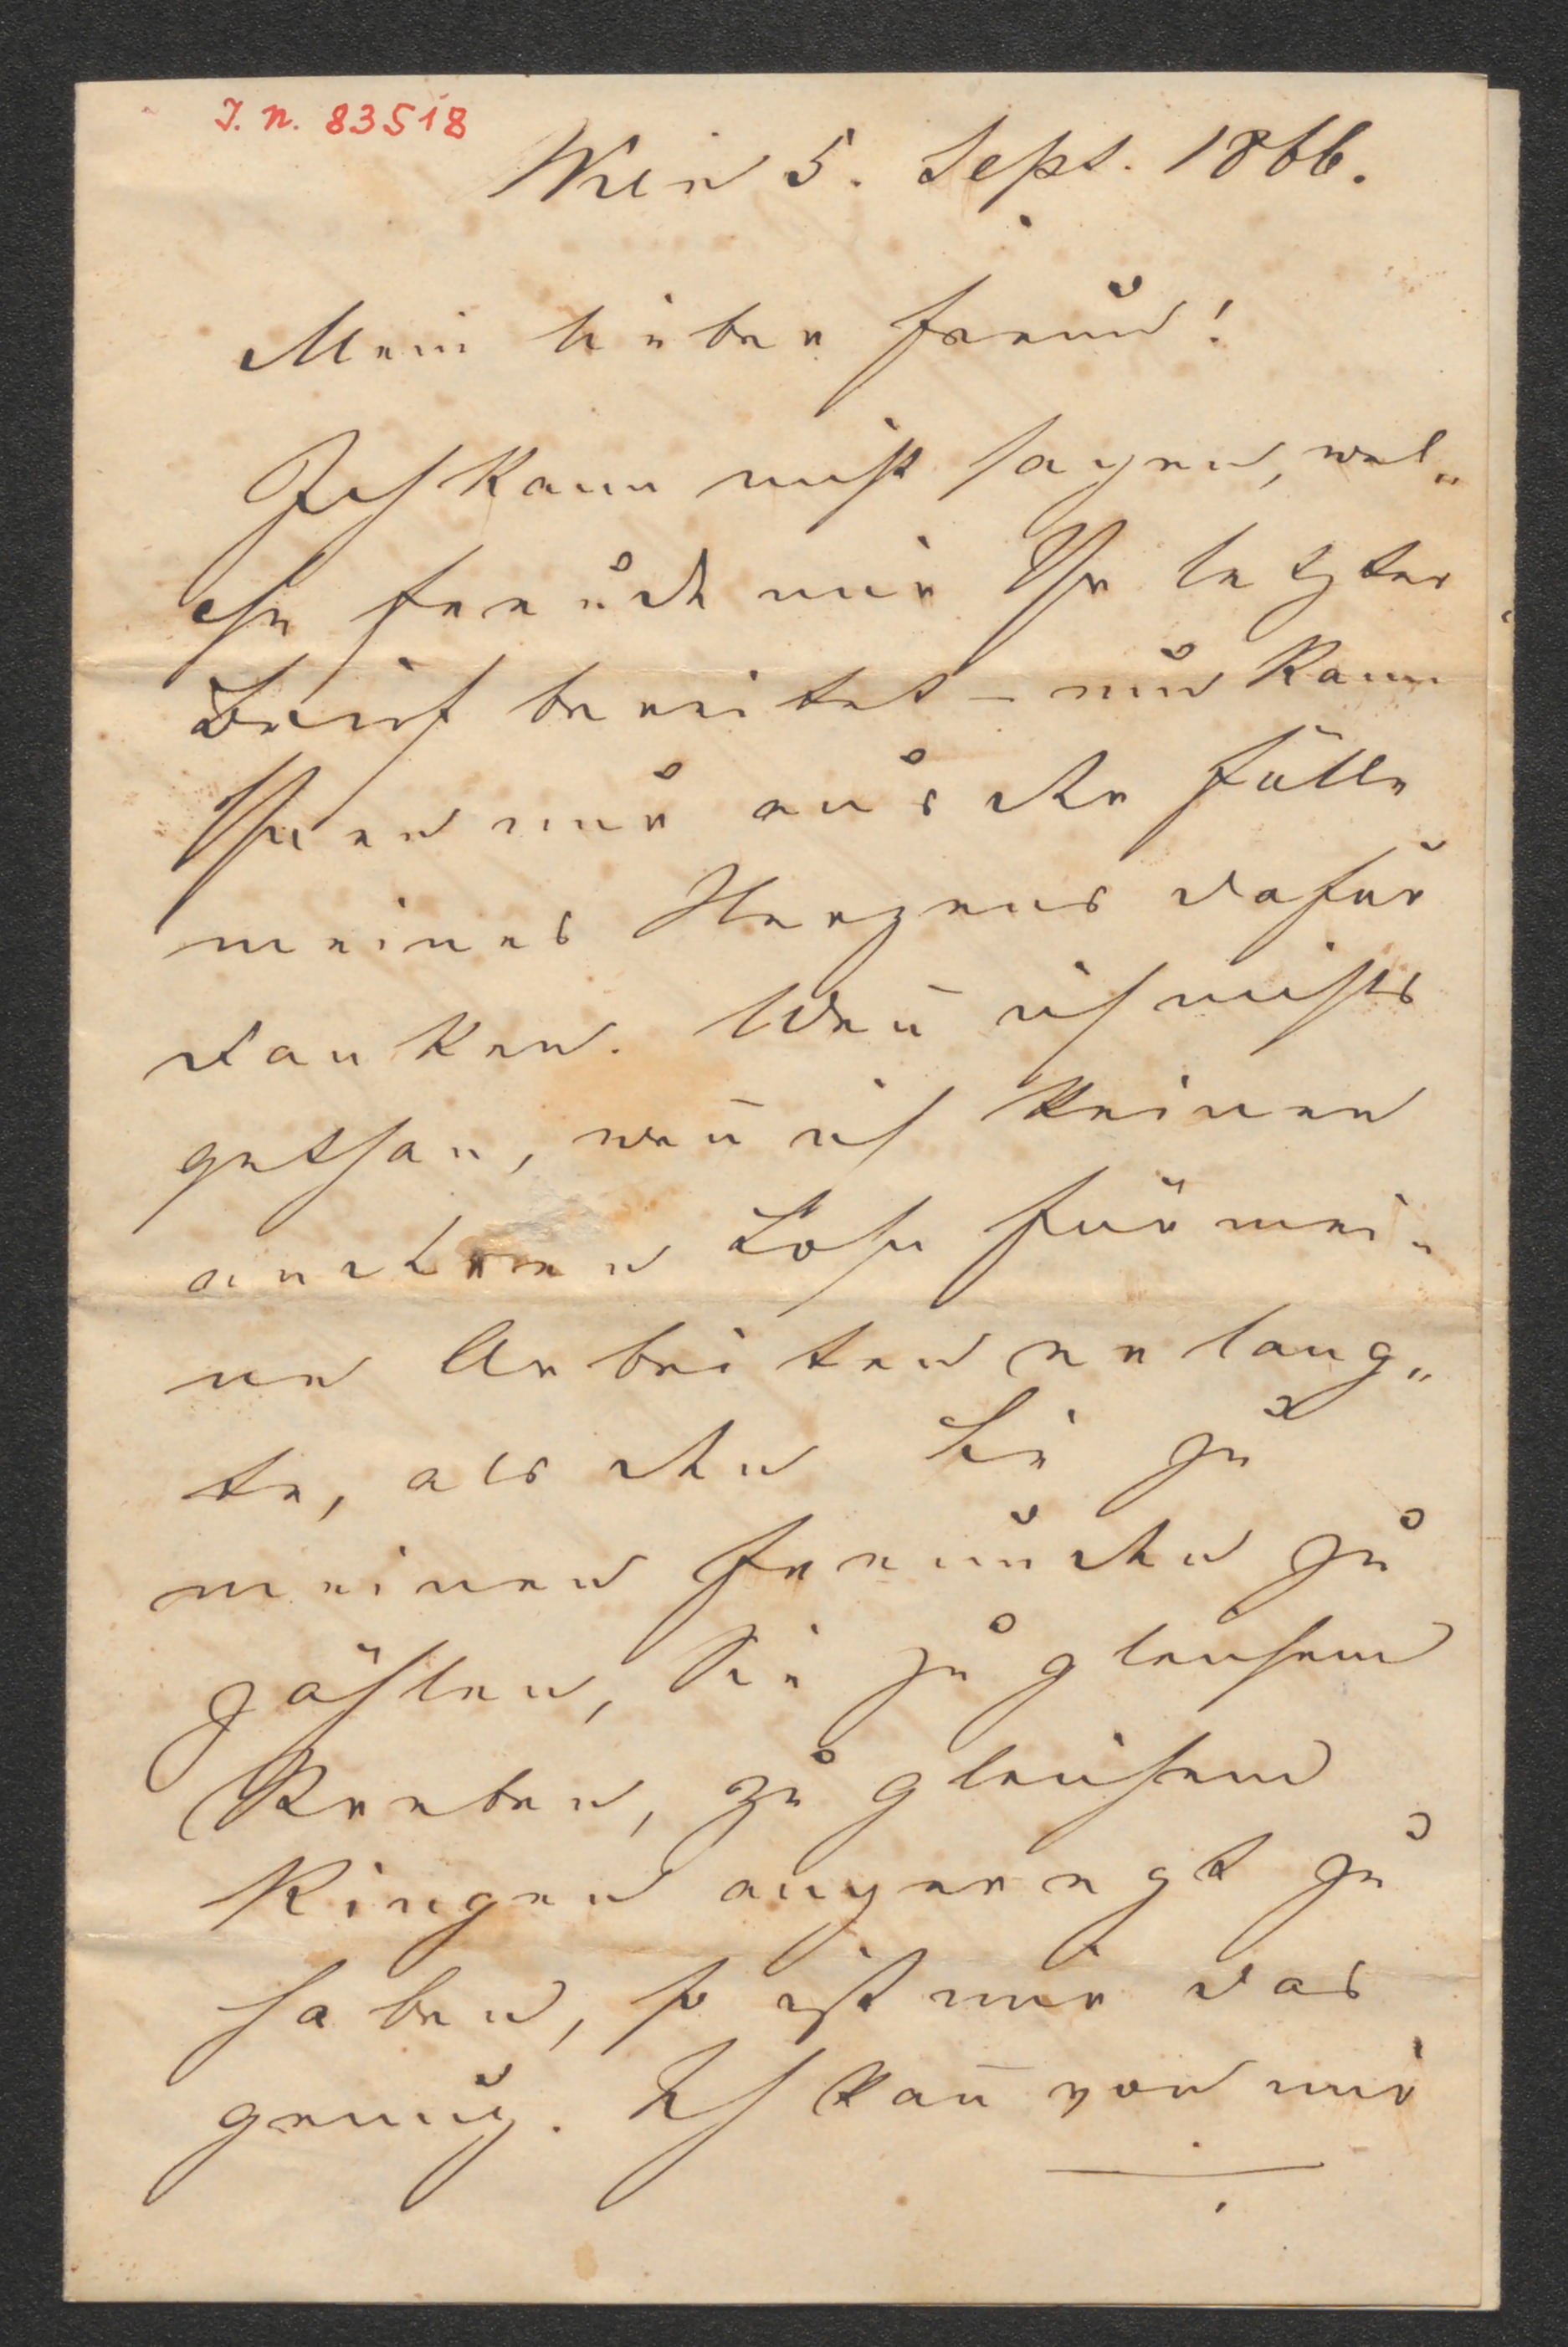 I. n. 83518
Wien 5. Sept. 1866.
Mein lieber Freund!
Ich kann nicht sagen, wel„
che Freude mir Ihr letzter
Brief bereitet – nur kann
Ihnen nur aus der Fülle
meines Herzens dafür
danken. Wen̄ ich nichts
gethan, wen̄ ich keinen
anderen Lohn für mei„
ne Arbeiten erlang„
te, als den Sie zu
meinen Freunden zu
zählen, Sie zu gleichem
Streben, zu gleichem
Ringen angeregt zu
haben, so ist mir das
genug. Ich kan̄ von mir